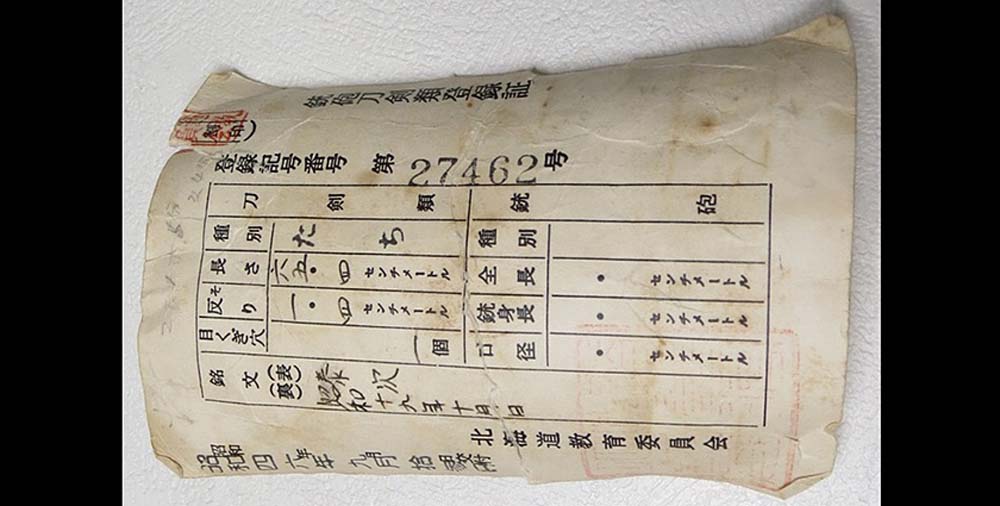 銃砲刀剣類登録証
(割印)
登録記号番号 第 27462 号
刀剣類 銃砲
種別 たち 種別
長さ 六五・四 センチメートル 全長 ・ センチメートル
反り そ 一・四 センチメートル 銃身長 ・ センチメートル
目くぎ穴 一個 口径 ・ センチメートル
銘文 (表) 次
(裏) 昭和十九年十月 日
北海道教育委員会
昭和四六年九月